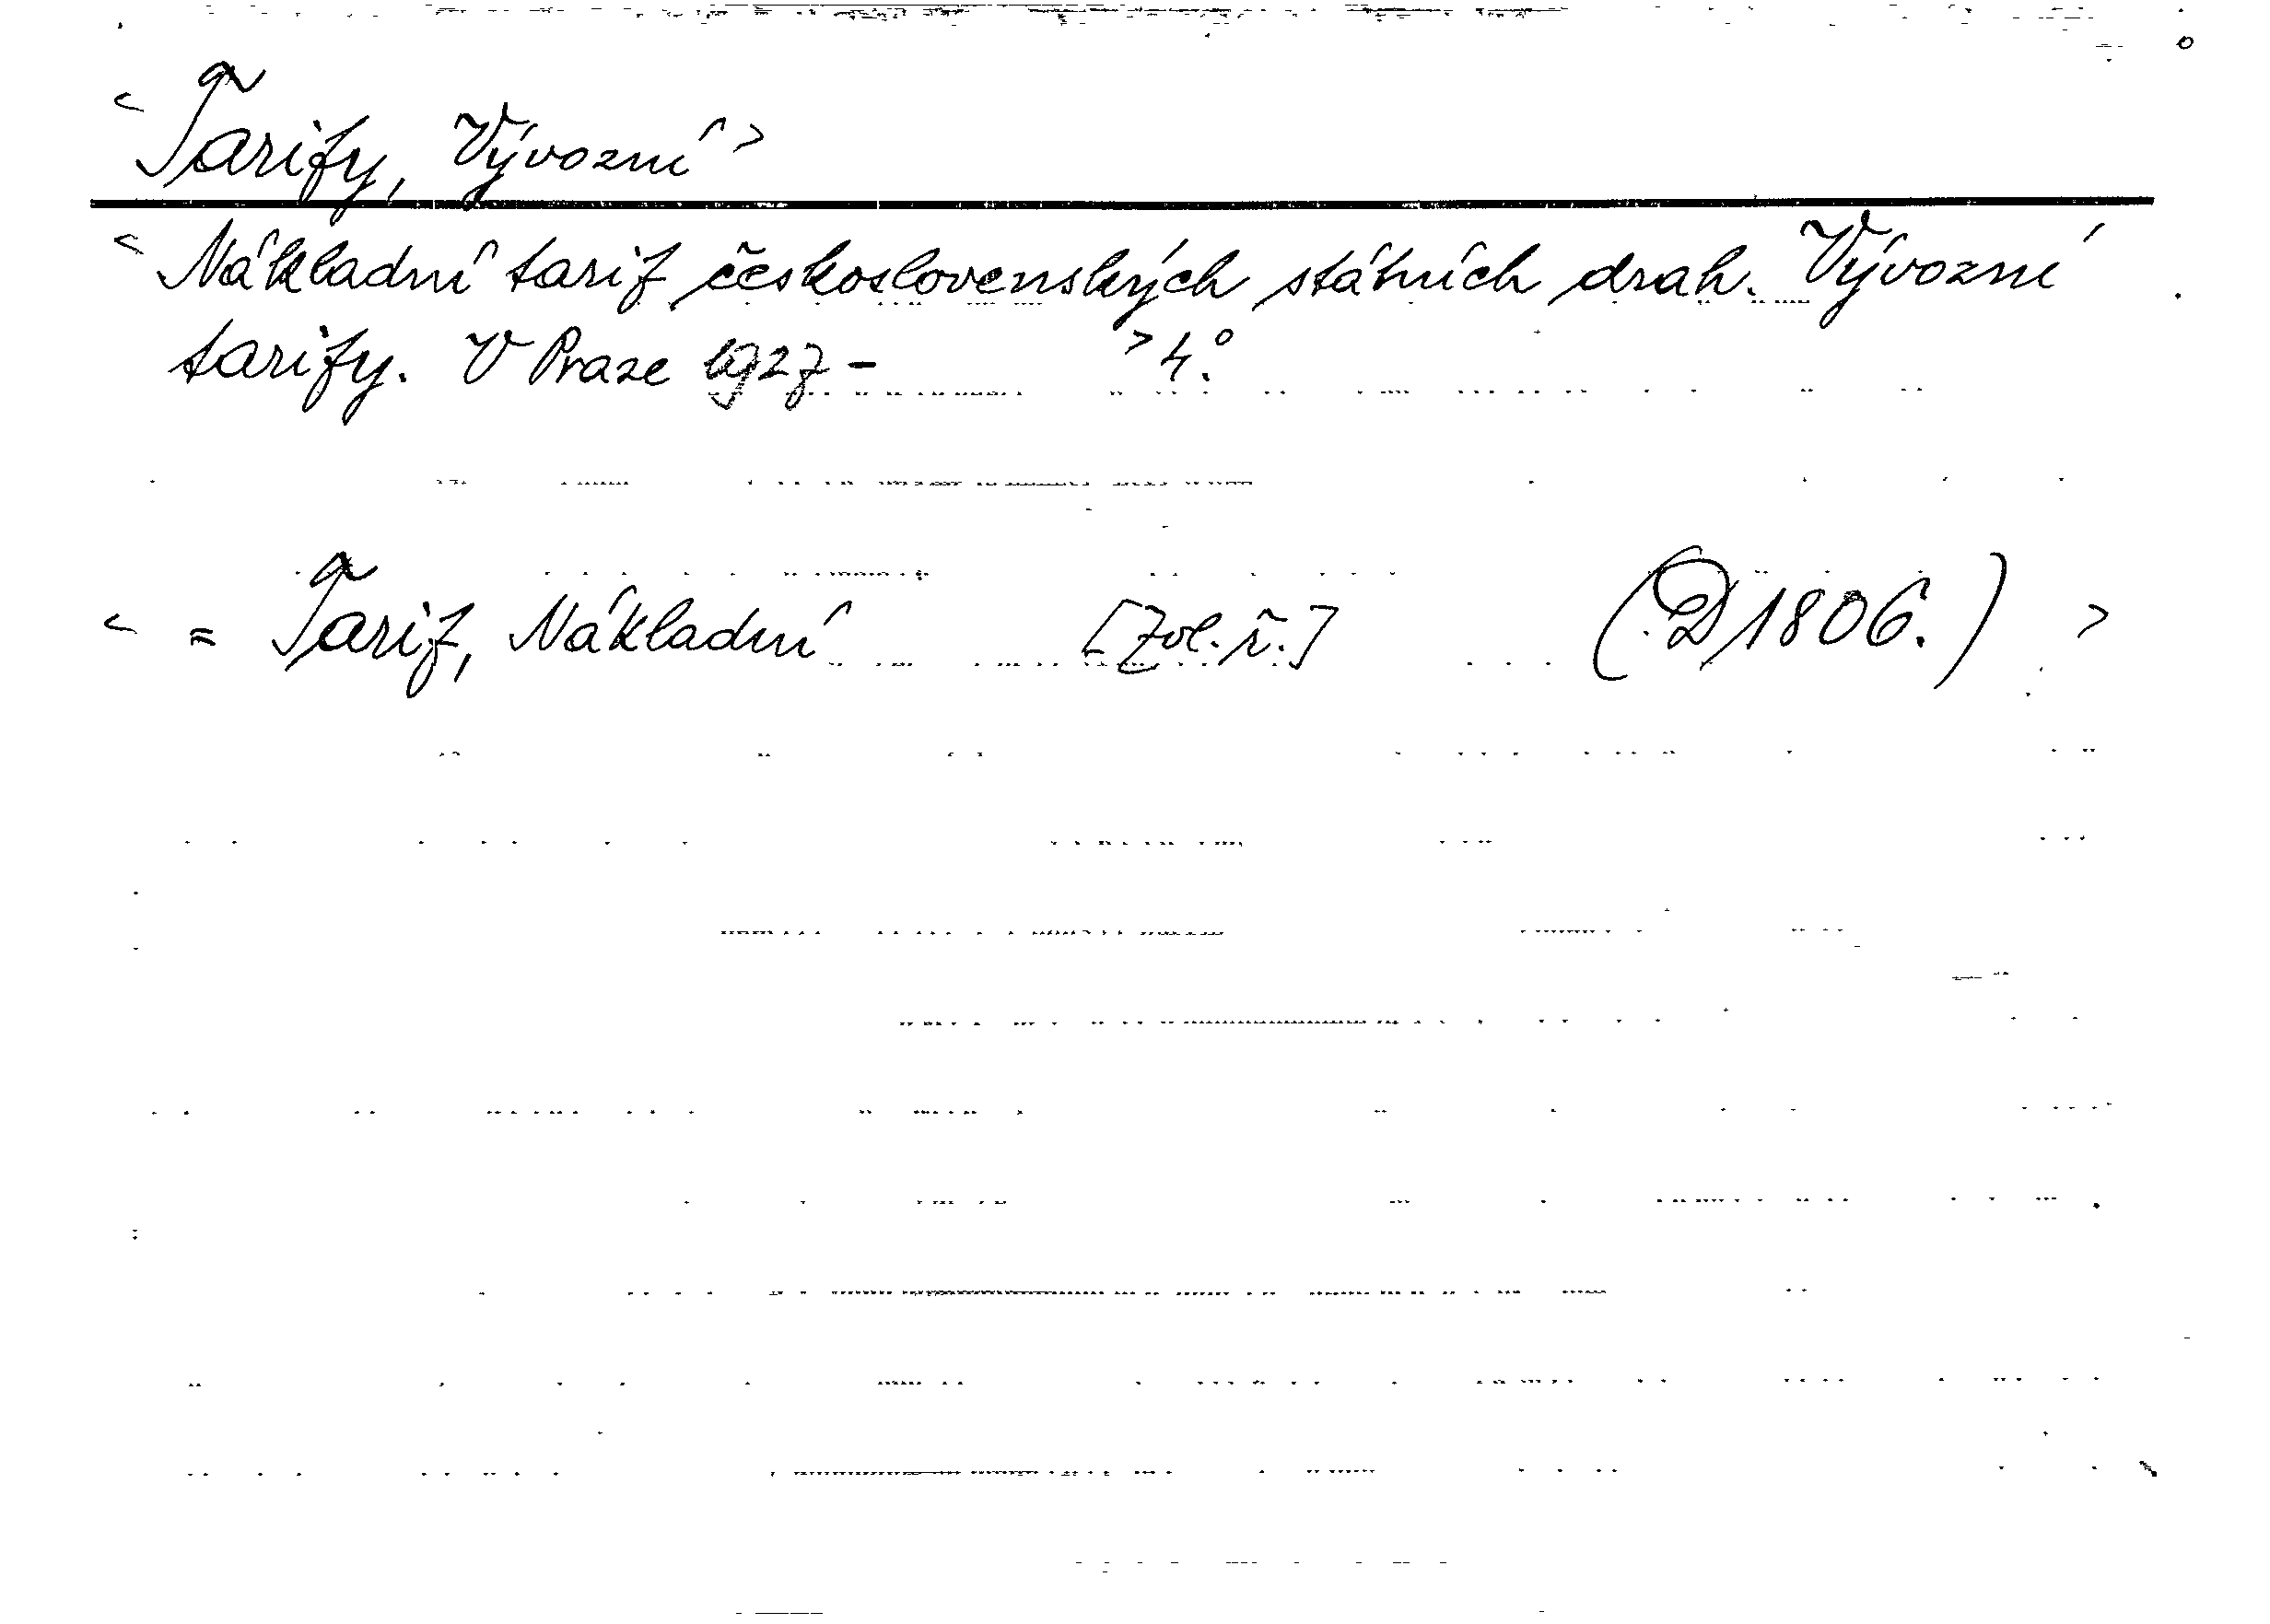 < Tarify, Vývozní >
< Nákladní tarif československých státních drah. Vývozní
tarify. V Praze 1927 - > 4°.
< = Tarif, Nákladní [Zvl. ř.] (D 1806.) >